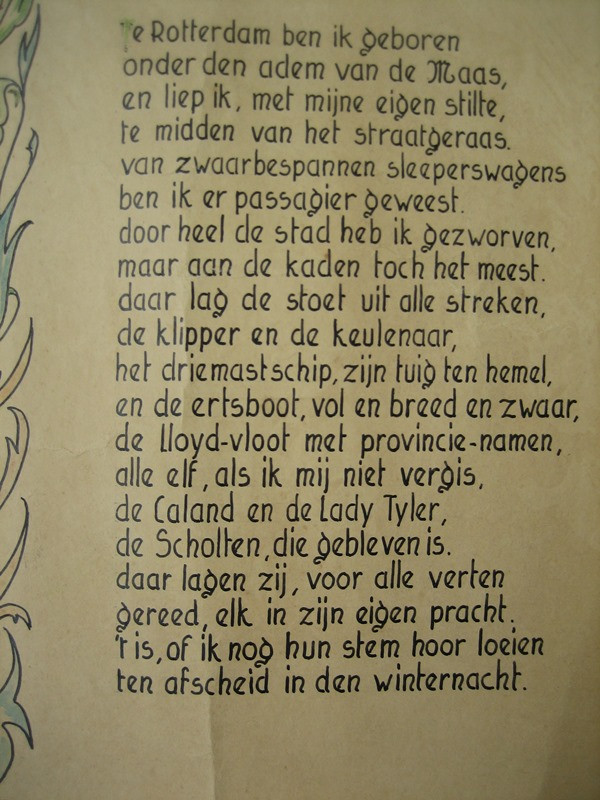 Te Rotterdam ben ik geboren
onder den adem van de Maas,
en liep ik, met mijne eigen stilte,
te midden van het straatgeraas.
van zwaarbespannen sleeperswagens
ben ik er passagier geweest.
door heel de stad heb ik gezworven,
maar aan de kaden toch het meest.
daar lag de stoet uit alle streken,
de klipper en de keulenaar,
het driemastschip, zijn tuig ten hemel,
en de ertsboot, vol en breed en zwaar,
de Lloyd-vloot met provincie-namen,
alle elf, als ik mij niet vergis,
de Caland en de Lady Tyler,
de Scholten, die gebleven is.
daar lagen zij, voor alle verten
gereed, elk in zijn eigen pracht.
't is, of ik nog hun stem hoor loeien
ten afscheid in den winternacht.